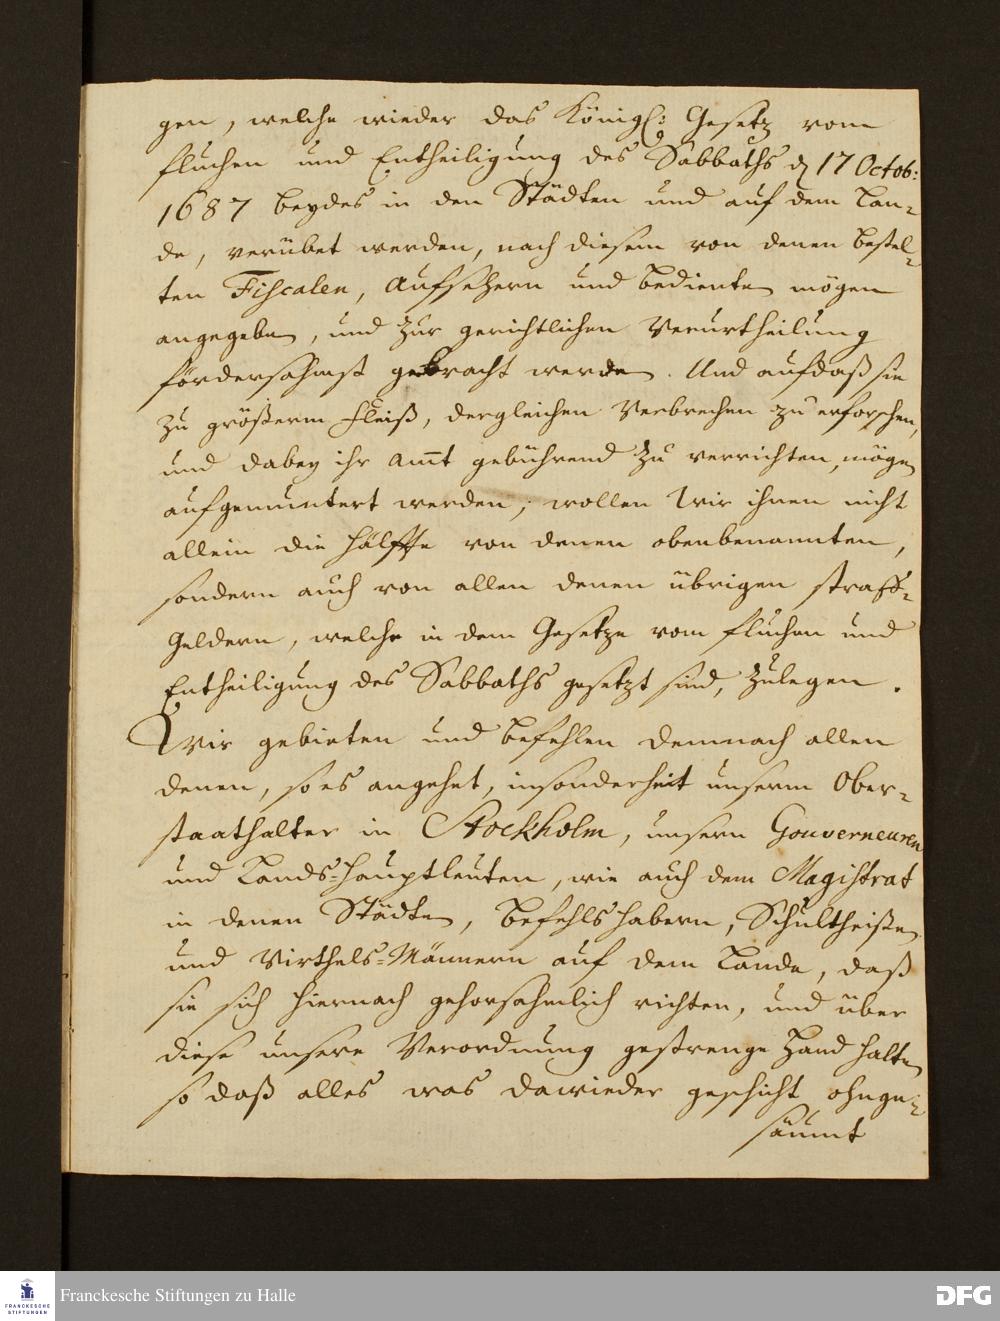 gen, welche wieder das Königl: Gesetz vom
fluchen und Entheiligung des Sabbaths d 17 Octob:
1687 beydes in den Städten und auf dem Lan-
de, verübet werden, nach diesem von denen bestel-
ten Fiscalen, Aufsehern und Bedienten mögen
angegeben, und zur gerichtlichen Verurtheilung
fördersahmst gebracht werden. Und aufdaß sie
zu größerm Fleiß, dergleichen Verbrechen zu erforschen,
und dabey ihr Amt gebührend zu verrichten, mögen
aufgemuntert werden; wollen Wir ihnen nicht
allein die Hälffte von denen obenbenannten,
sondern auch von allen denen übrigen straff-
Geldern, welche in dem Gesetze vom fluchen und
Entheiligung des Sabbaths gesetzt sind, zulegen.
Wir gebieten und befehlen demnach allen
denen, so es angehet, insonderheit unserm Ober-
staathalter in Stockholm, unsern Gouverneuren
und Lands-Hauptleuten, wie auch dem Magistrat
in denen Städten, Befehlshabern, Schultheißen
und Virthels-Männern auf dem Lande, daß
sie sich hiernach gehorsahmlich richten, und über
diese unsere Verordnung gestrenge Hand halten
so daß alles was dawieder geschicht, ohnge-
säumt
Franckesche Stiftungen zu Halle
FRANCKESCHE
STIFTUNGEN
DFG